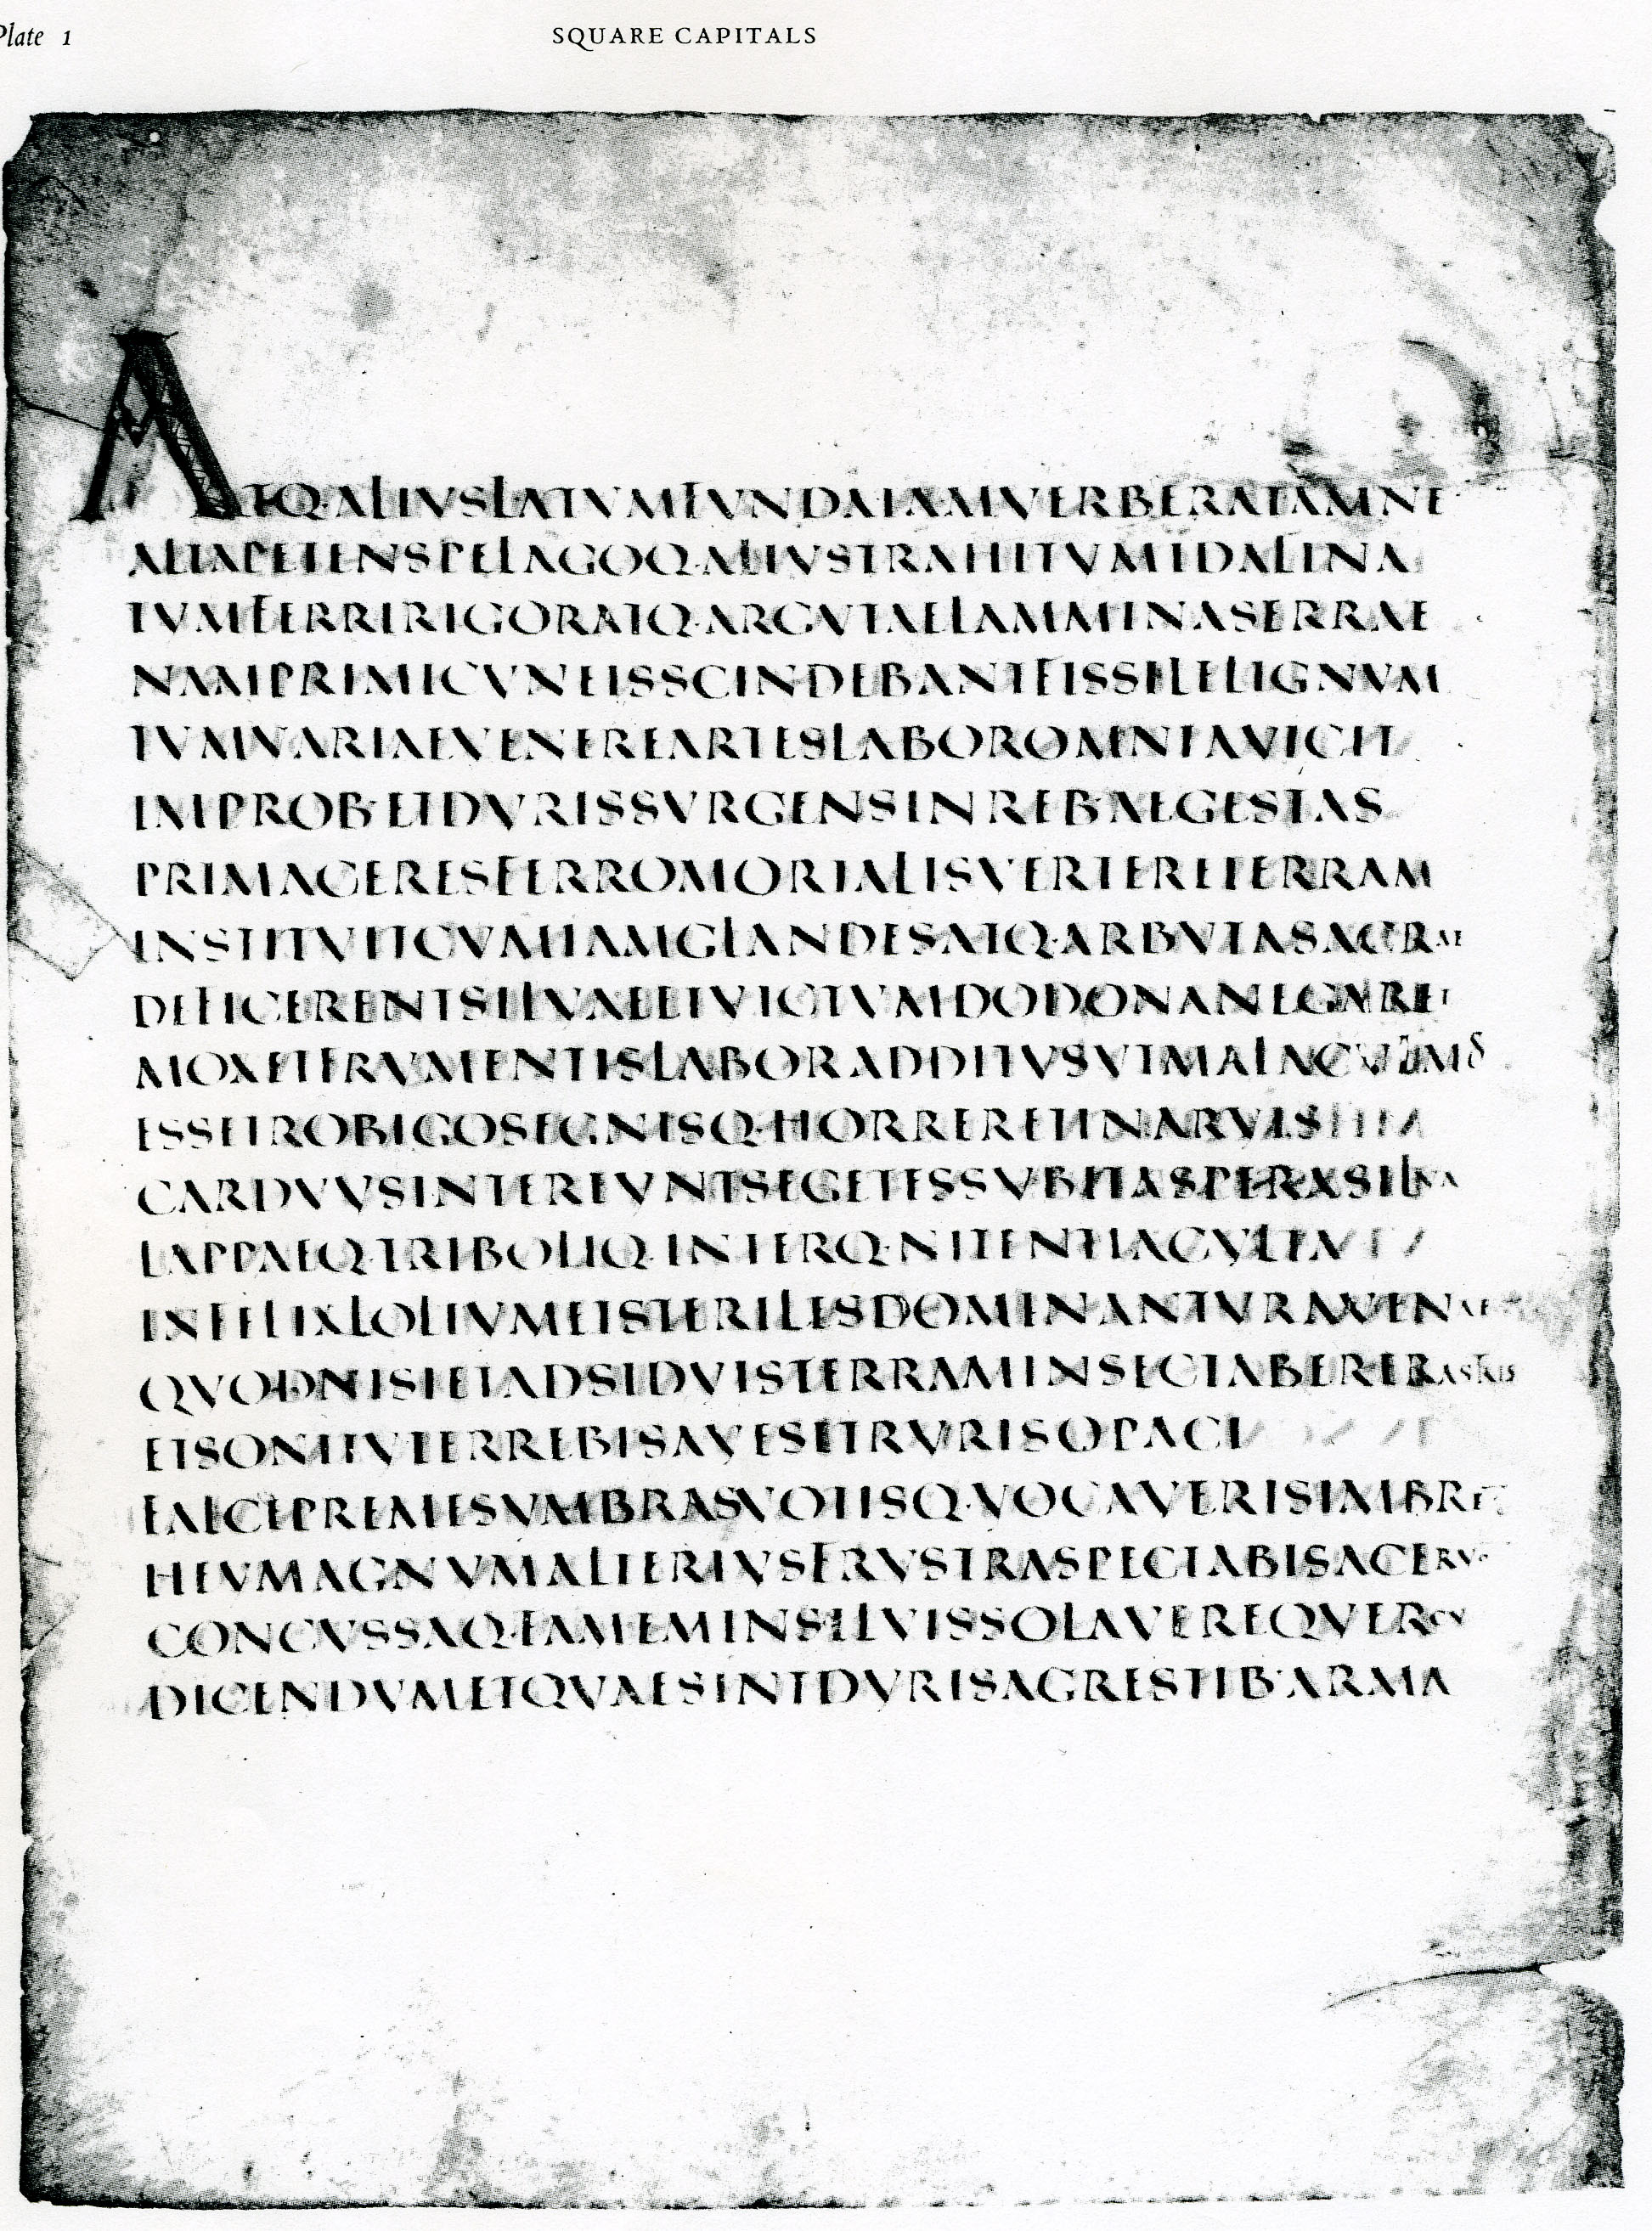 Plate 1
SQUARE CAPITALS
ATQ·ALIVSLATVMFVNDAIAMVERBERATAMNE
ALTAPETENSPELAGOQ·ALIVSTRAHITVMIDALINA
TVMFERRIRIGORATQ·ARGVTAELAMMINASERRAE
NAMPRIMICVNEISSCINDEBANTFISSILELIGNVM
TVMVARIAEVENEREARTESLABOROMNIAVICIT
IMPROB·ETDVRISSVRGENSINREB·AEGESTAS
PRIMACERESFERROMORTALISVERTERETERRAM
INSTITVITCVMIAMGLANDESATQ·ARBVTASACRAE
DEFICERENTSILVAEETVICTVMDODONANEGARET
MOXETFRVMENTISLABORADDITVSVTMALACVLMOS
ESSETROBIGOSEGNISQ·HORRERETINARVIS
CARDVVSINTEREVNTSEGETESSVBITASPERASILVA
LAPPAEQ·TRIBOLIQ·INTERQ·NITENTIACVLTA
INFELIXLOLIVMETSTERILESDOMINANTVRAVENAE
QVODNISIETADSIDVISTERRAMINSECTABERERASTRIS
ETSONITVTERREBISAVESETRVRISOPACI
FALCEPREMESVMBRASVOTISQ·VOCAVERISIMBRE
HEVMAGNVMALTERIVSFRVSTRASPECTABISACERVO
CONCVSSAQ·FAMEMINSILVISSOLAVEREQVERCV
DICENDVMETQVAESINTDVRISAGRESTIB·ARMA